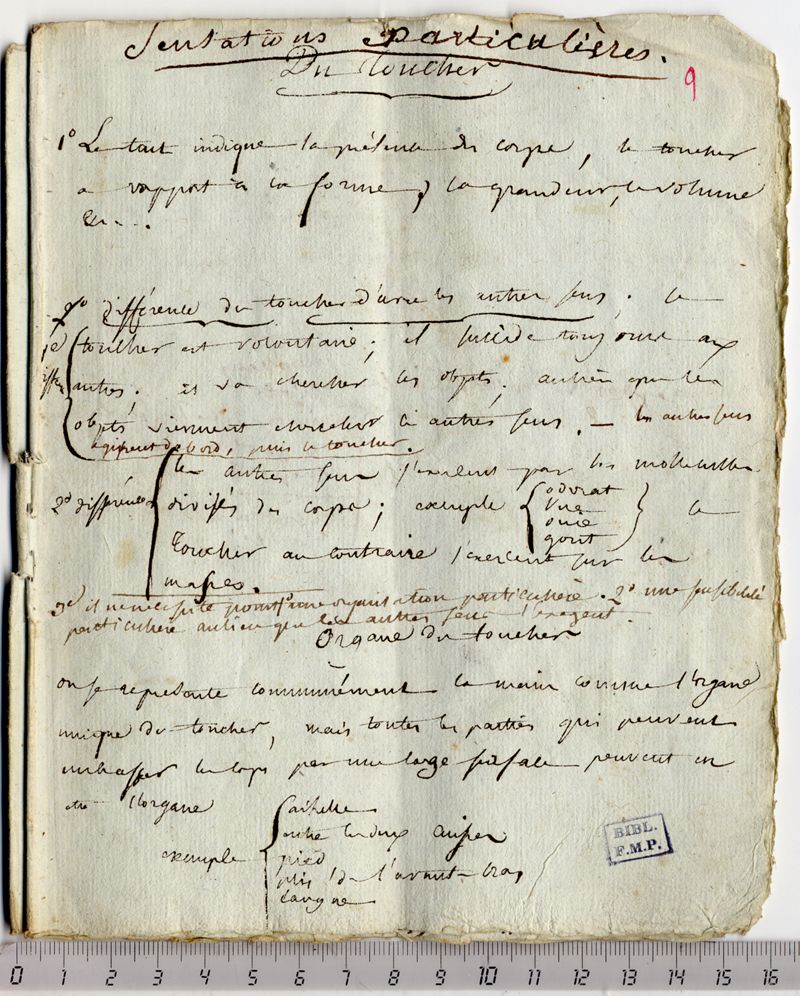 Sensations particulières.
Du toucher
9
1° Le tact indique la présence des corps, le toucher
a rapport à la forme, la grandeur, le volume
&c...
2° différence du toucher d'avec les autres sens. le
1e différ. toucher est volontaire; il succède toujours aux
autres. il va chercher les objets, au lieu que les
objets viennent chercher les autres sens. — les autres sens
agissent d'abord, puis le toucher.
les autres sens s'exercent par les molécules
2e différence divisés des corps; exemple odorat vue ouie gout le
toucher au contraire s'exercent sur les
masses.
3e il ne nécessite point 1° une organisation particulière. 2° une sensibilité
particulière au lieu que les autres sens l'exigent.
Organe du toucher
on se représente communément la main comme l'organe
unique du toucher, mais toutes les parties qui peuvent
embrasser les corps par une large surface peuvent en
être l'organe
exemple aisselle
entre les deux cuisses
pied
plis de l'avant-bras
langue
BIBL.
F.M.P.
0 1 2 3 4 5 6 7 8 9 10 11 12 13 14 15 16